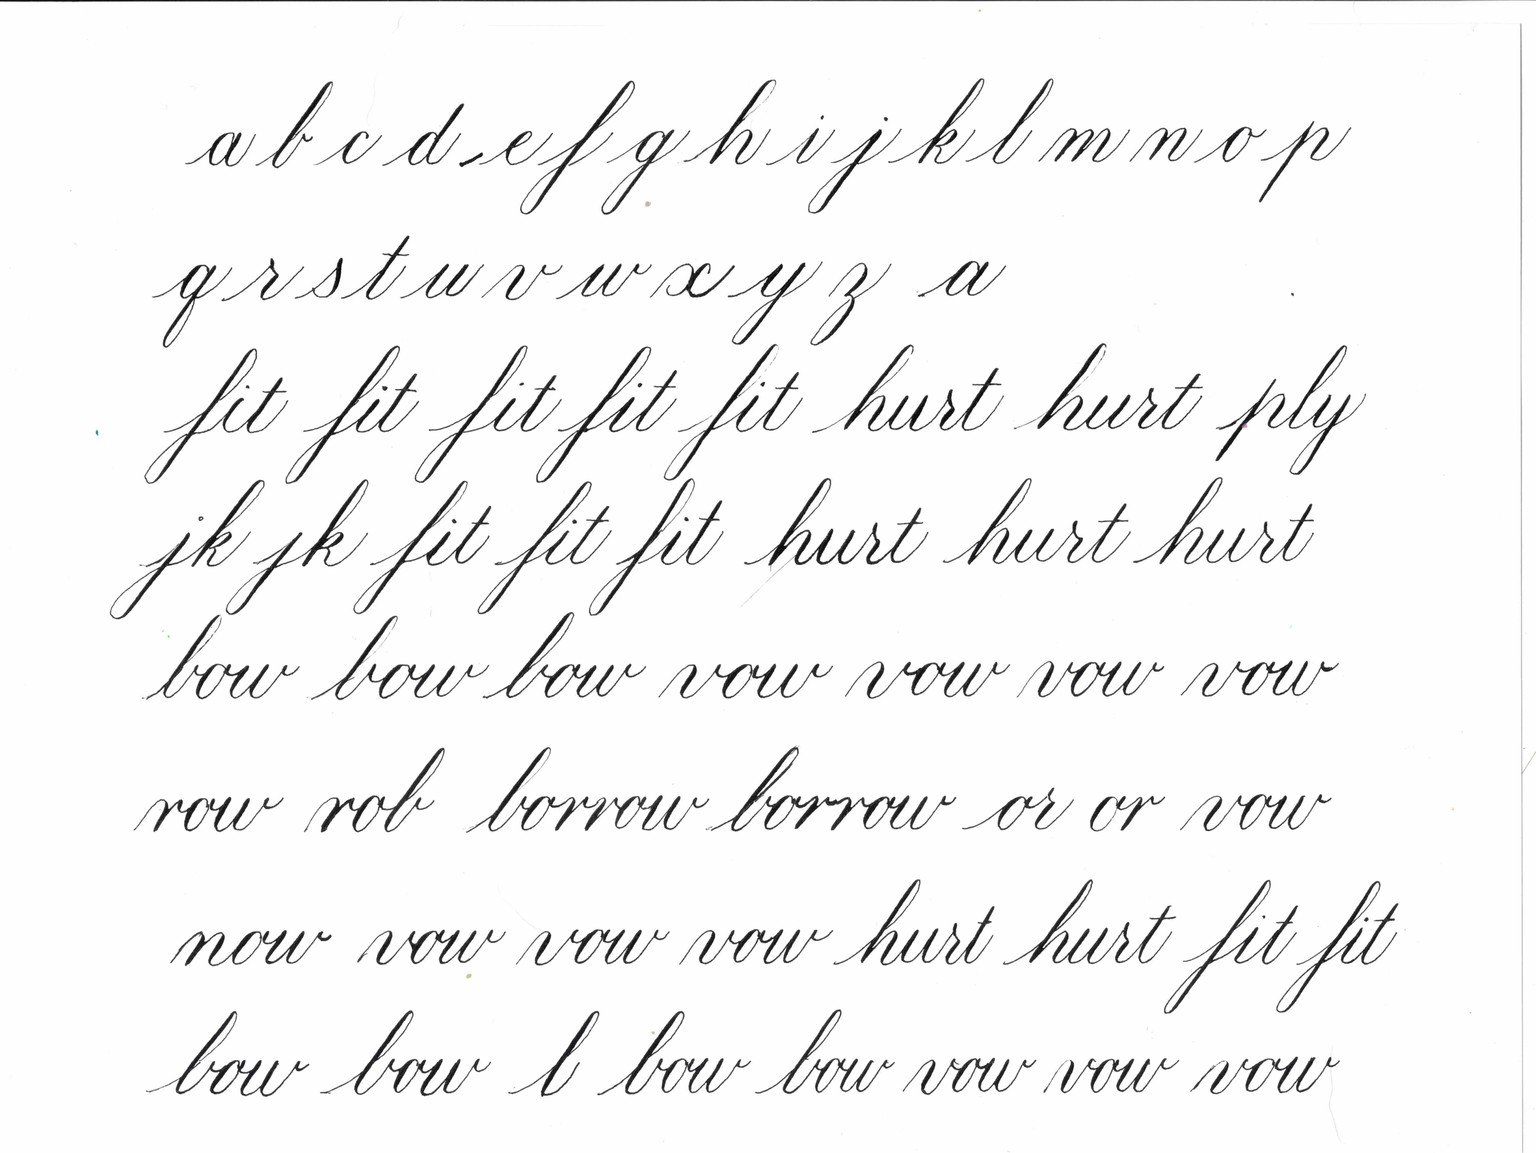 a b c d e f g h i j k l m n o p
q r s t u v w x y z a
fit fit fit fit fit hurt hurt ply
jk jk fit fit fit hurt hurt hurt
bow bow bow vow vow vow vow
row rob borrow borrow or or vow
now vow vow vow hurt hurt fit fit
bow bow l bow bow vow vow vow